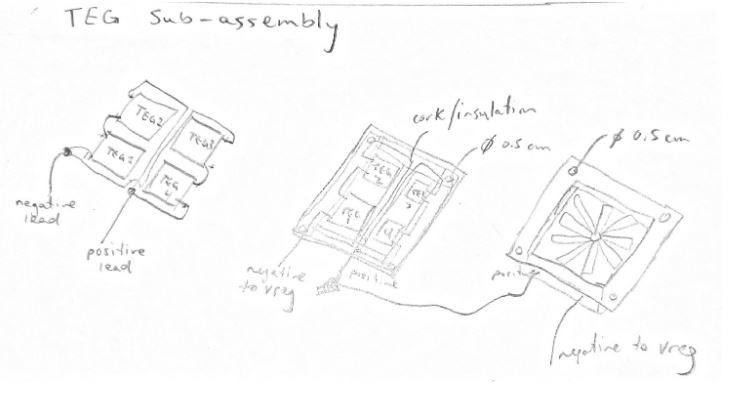 TEG Sub-assembly
TEG2
TEG1
TEG3
TEG
4
negative
lead
positive
lead
cork/insulation
Ø 0.5 cm
TEG
2
TEG
3
TEG
1
4
negative
to vreg
positive
Ø 0.5 cm
positive
negative to vreg